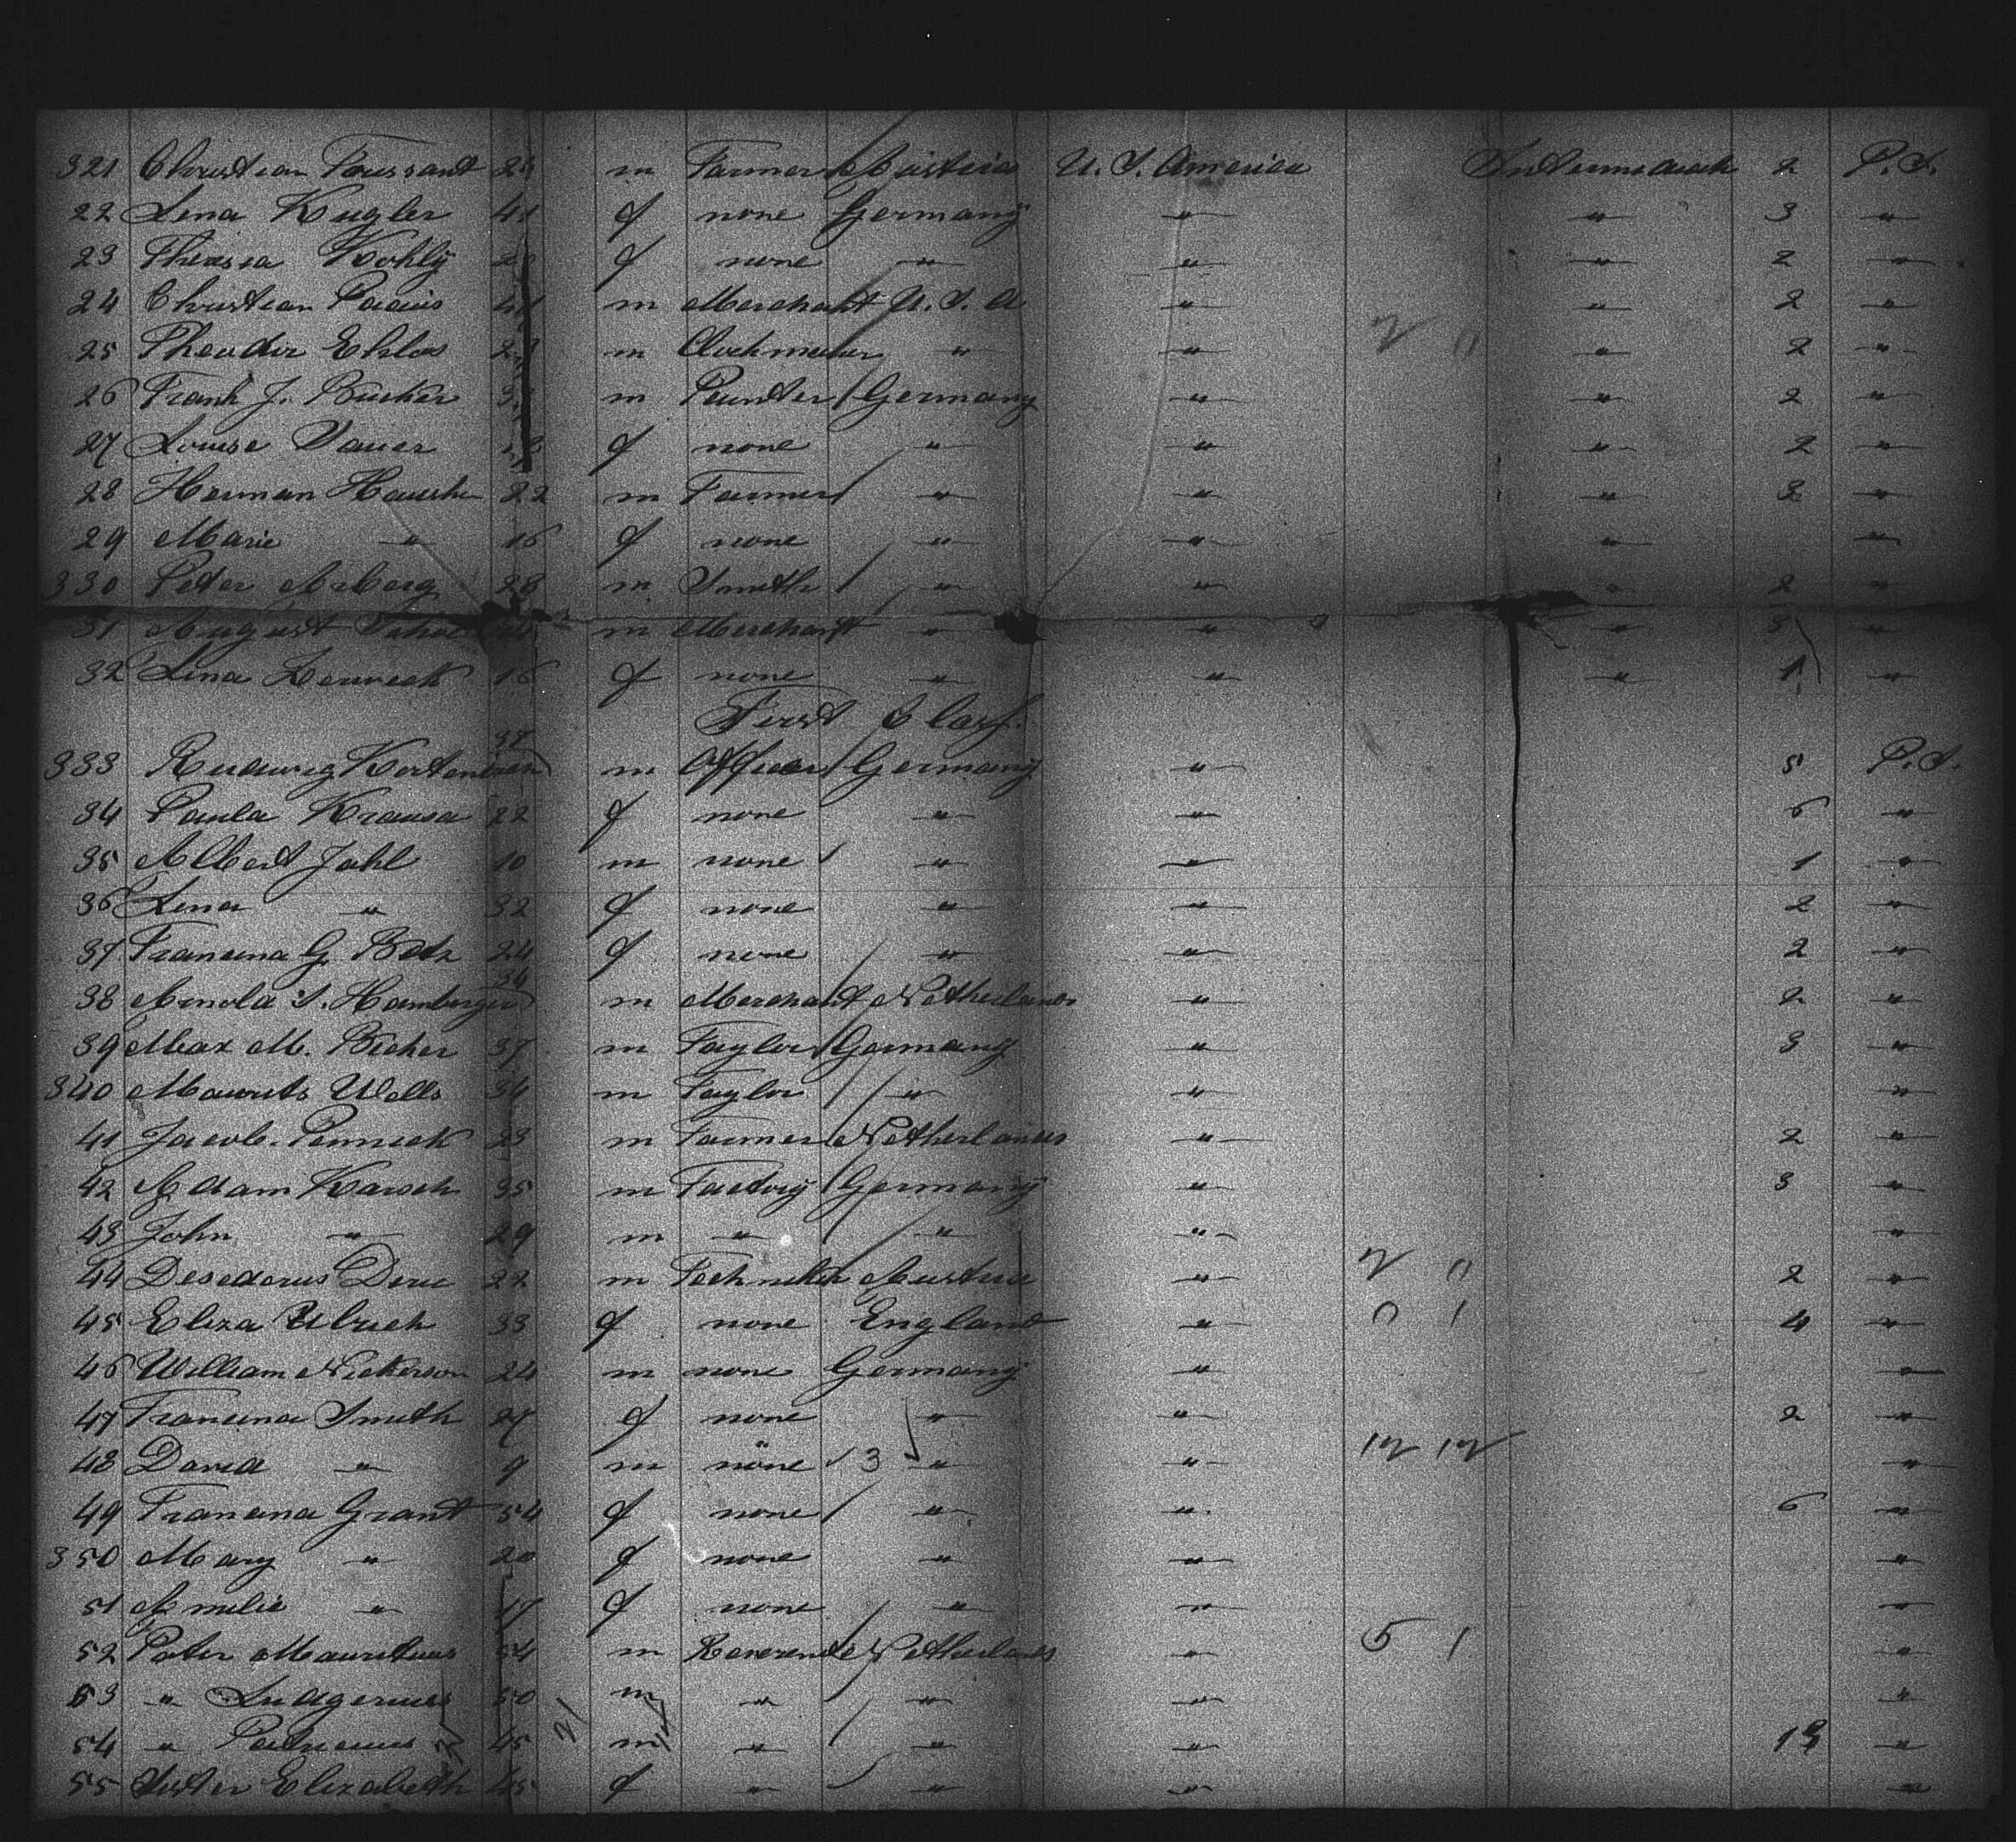 321 Christian Toussant m Farmer Austria U. S. America 2 P. S.
22 Lena Kugler 41 f none Germany " " 3 "
23 Theresia Kohly f none " " " 2 "
24 Christian 41 m Merchant U. S. A " " 2 "
25 Theodor Ehlos m Clockmaker " " 2 11 " 2 "
26 Frank J. Bücker m Peinter Germany " " 2 "
27 Louise Sauer f none " " " 2 "
28 Herman 22 m Farmer " " " 3 "
29 Marie " 16 f none " " " "
330 Peter Arberg 28 m Smith " " " 2 "
31 August m Merchant " " " 3 "
32 Lina 16 f none " " " 1 "
First Class.
37
333 Ludwig m Officer Germany " 5 P. S.
34 Paula Krausa 22 f none " " 6 "
35 Albert Johl 10 m none " " 1 "
36 Lena " 32 f none " " 2 "
37 Francina G. Betz 24 f none " " 2 "
34
38 Arnold S. Hamburger m Merchant Netherlands " 2 "
39 Max M. Becher 37 m Taylor Germany " 3 "
340 Maurits Wells 34 m Taylor " " "
41 Jacob. Pennick 23 m Farmer Netherlands " 2 "
42 Adam Karsch 35 m Factory Germany " 3 "
43 John " 29 m " " " "
44 Desederius 22 m Austria " 2 11 2 "
45 Eliza Ulrich 33 f none England " 0 1 4 "
46 William Nickerson 24 m none Germany " "
47 Francina Smith 27 f none " " 2 "
48 David " 9 m none 3 " " 12 12 "
49 Francina Grant 54 f none " " 6 "
350 Mary " 20 f none " " "
51 Amelie " 17 f none " " "
52 Pater Mauritius 54 m Reverend Netherlands " 5 1 "
53 " Ludgerius 50 m " " " "
54 " 45 m " " " 13 "
55 Sister Elizabeth 45 f " " " "